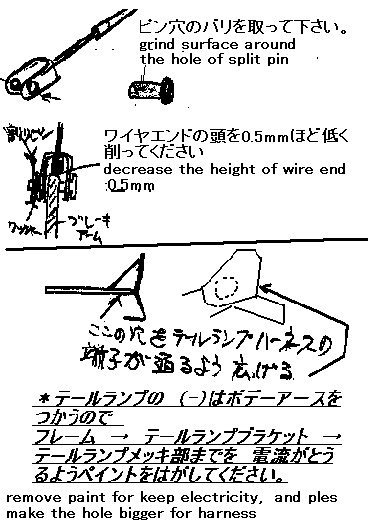 ピン穴のバリを取って下さい。
grind surface around
the hole of split pin
ワイヤエンドの頭を0.5mmほど低く
削ってください
decrease the height of wire end
0.5mm
割りピン
ワッシャー
ブレーキ
アーム
ここの穴をテールランプハーネスの
端子が通るよう広げる
*テールランプの (-)はボデーアースを
つかうので
フレーム → テールランプブラケット →
テールランプメッキ部までを 電流がとう
るようペイントをはがしてください。
remove paint for keep electricity, and ples
make the hole bigger for harness